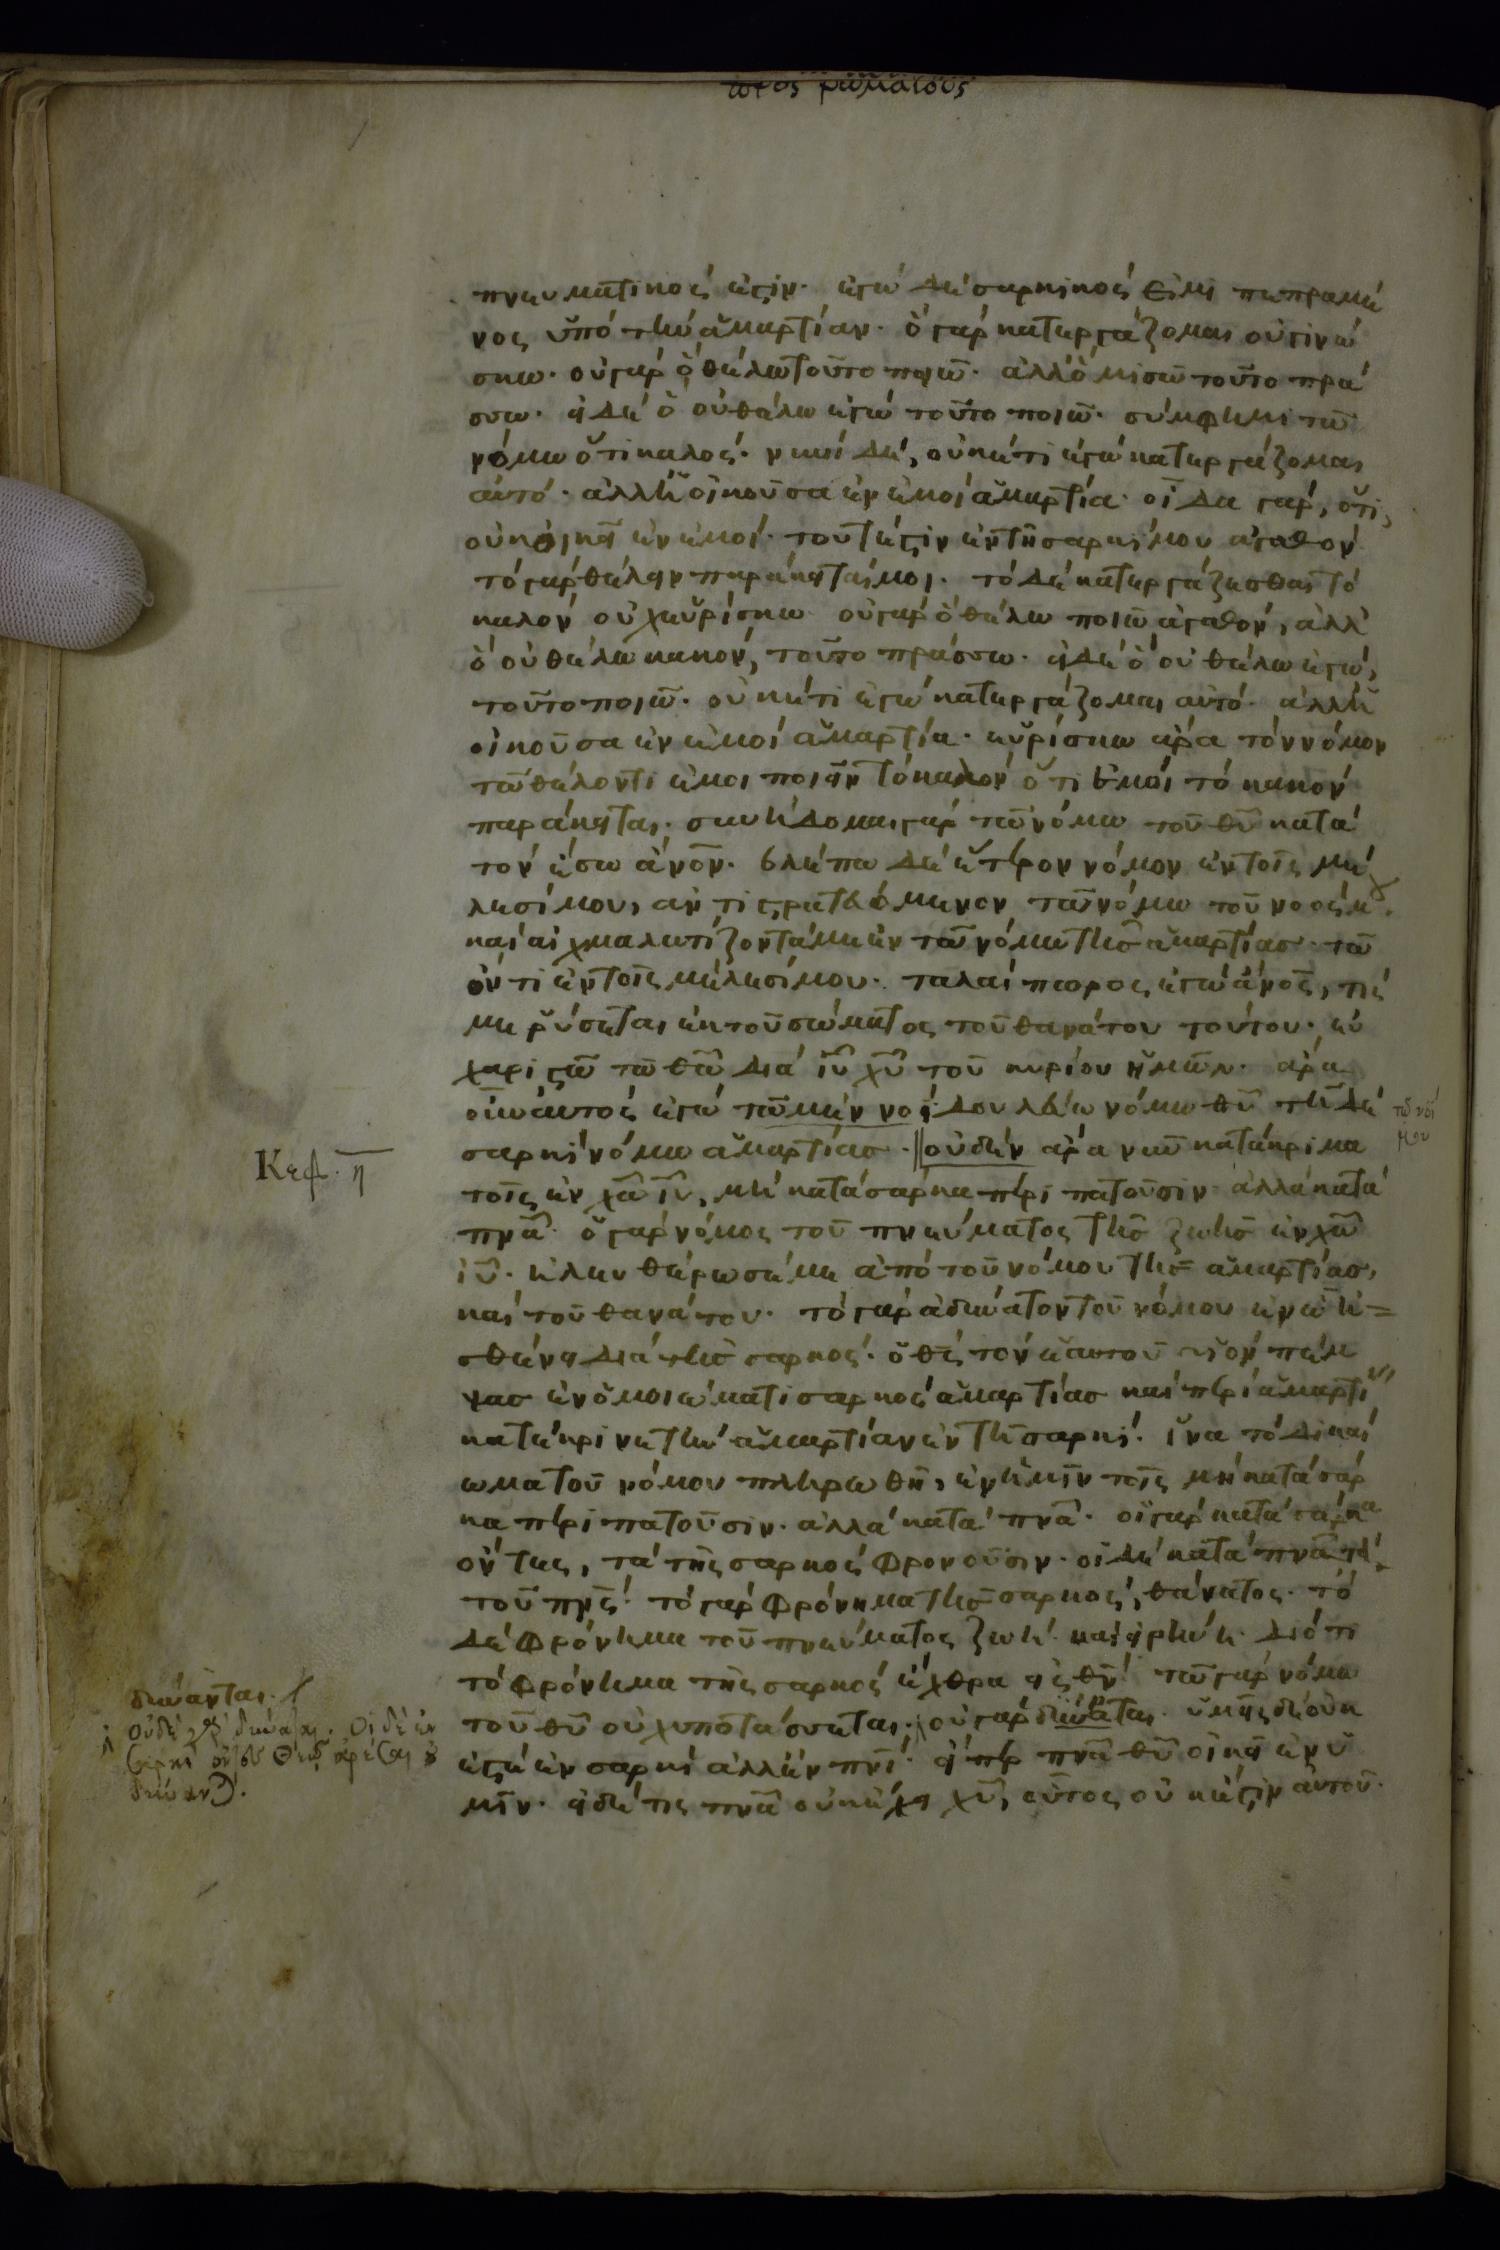 προς ρωμαιους
πνευματικός ἐστιν· ἐγὼ δὲ σαρκικός εἰμι πεπραμέ
νος ὑπὸ τὴν ἁμαρτίαν· ὃ γὰρ κατεργάζομαι οὐ γινώ
σκω· οὐ γὰρ ὃ θέλω τοῦτο ποιῶ· ἀλλ' ὃ μισῶ τοῦτο πρά
σσω· εἰ δὲ ὃ οὐ θέλω ἐγὼ τοῦτο ποιῶ· σύμφημι τῶ
νόμω ὅτι καλός· νυνὶ δὲ, οὐκέτι ἐγὼ κατεργάζομαι
αὐτό· ἀλλ' ἡ οἰκοῦσα ἐν ἐμοὶ ἁμαρτία· οἶδα γὰρ, ὅτι
οὐκ οἰκεῖ ἐν ἐμοὶ· τουτέστιν ἐν τῆ σαρκί μου ἀγαθόν
τὸ γὰρ θέλειν παράκειταί μοι· τὸ δὲ κατεργάζεσθαι τὸ
καλὸν οὐχ εὑρίσκω· οὐ γὰρ ὃ θέλω ποιῶ ἀγαθόν, ἀλλ'
ὃ οὐ θέλω κακόν, τοῦτο πράσσω· εἰ δὲ ὃ οὐ θέλω ἐγώ,
τοῦτο ποιῶ· οὐκέτι ἐγὼ κατεργάζομαι αὐτό· ἀλλ' ἡ
οἰκοῦσα ἐν ἐμοὶ ἁμαρτία· εὑρίσκω ἄρα τὸν νόμον
τῶ θέλοντι ἐμοι ποιεῖν τὸ καλόν ὅτι ἐμοὶ τὸ κακόν
παράκειται· συνήδομαι γὰρ τῶ νόμω τοῦ θῦ κατὰ
τὸν ἔσω ἄνον· βλέπω δὲ ἕτερον νόμον ἐν τοῖς μέ
λεσί μου, ἀντιστρατευόμενον τῶ νόμω τοῦ νοός μ
καὶ αἰχμαλωτίζοντά με ἐν τῶ νόμω τῆς ἁμαρτίας τῶ
ὄντι ἐν τοῖς μέλεσί μου· ταλαίπωρος ἐγὼ ἄνος, τίς
με ῥύσεται ἐκ τοῦ σώματος τοῦ θανάτου τούτου· εὐ
χαριστῶ τῶ θῶ διὰ ἰῦ χῦ τοῦ κυρίου ἡμῶν· ἄρα
οὖν αὐτὸς ἐγὼ τῶ μὲν νοῒ δουλεύω νόμω θῦ τῆ δὲ
τῶ νοΐ
μου
σαρκὶ νόμω ἁμαρτίας· οὐδὲν ἄρα νῦν κατάκριμα
Κεφ. η
τοῖς ἐν χῶ ἰῦ, μὴ κατὰ σάρκα περιπατοῦσιν ἀλλὰ κατὰ
πνᾶ· ὁ γὰρ νόμος τοῦ πνεύματος τῆς ζωῆς ἐν χῶ
ἰῦ· ἠλευθέρωσέ με ἀπὸ τοῦ νόμου τῆς ἁμαρτίας,
καὶ τοῦ θανάτου· τὸ γὰρ ἀδύνατον τοῦ νόμου ἐν ὧ ἠ=
σθένει διὰ τῆς σαρκός· ὁ θς τὸν ἑαυτοῦ υἱὸν πέμ
ψας ἐν ὁμοιώματι σαρκὸς ἁμαρτίας καὶ περὶ ἁμαρτί
κατέκρινε τὴν ἁμαρτίαν ἐν τῆ σαρκί· ἵνα τὸ δικαί
ωμα τοῦ νόμου πληρωθῆ, ἐν ἡμῖν τοῖς μὴ κατὰ σάρ
κα περιπατοῦσιν· ἀλλὰ κατὰ πνᾶ· οἱ γὰρ κατὰ σάρκα
ὄντες, τὰ τῆς σαρκὸς φρονοῦσιν· οἱ δὲ κατὰ πνᾶ τὰ
τοῦ πνς· τὸ γὰρ φρόνημα τῆς σαρκός, θάνατος· τὸ
δὲ φρόνημα τοῦ πνεύματος ζωὴ καὶ εἰρήνη· διότι
τὸ φρόνημα τῆς σαρκὸς ἔχθρα εἰς θν τῶ γὰρ νόμω
τοῦ θῦ οὐχ υποτάσσεται, οὐ γὰρ δύναται· ὑμεῖς δὲ οὐκ
ἐστὲ ἐν σαρκὶ ἀλλ' ἐν πνί· εἴπερ πνᾶ θῦ οἰκεῖ ἐν ὑ
μῖν· εἰ δέ τις πνᾶ οὐκ ἔχει χῦ, οὗτος οὐκ ἔστιν αὐτοῦ·
δύνανται.
οὐδὲ γὰρ δύναται. Οἱ δὲ ἐν
σαρκὶ ὄντες Θεῷ ἀρέσαι οὐ
δύνανται.